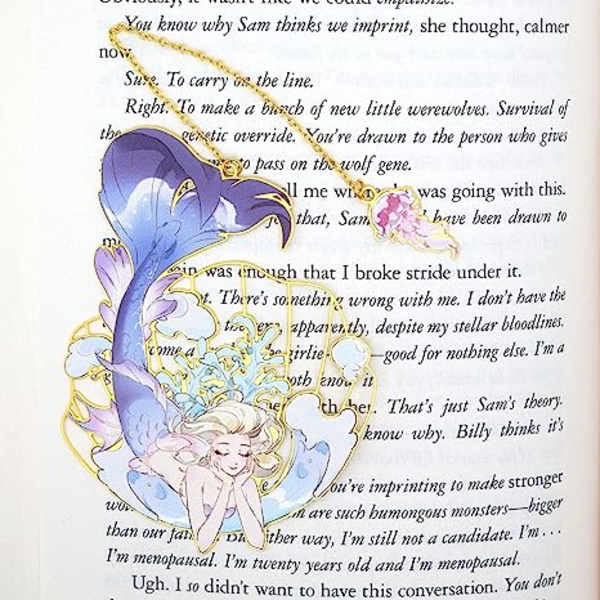 Obviously, it wasn't like we could empathize.
You know why Sam thinks we imprint, she thought, calmer
now.
Sure. To carry on the line.
Right. To make a bunch of new little werewolves. Survival of
the genetic override. You're drawn to the person who gives
to pass on the wolf gene.
ll me wh was going with this.
that, Sam have been drawn to
in was enough that I broke stride under it.
t. There's something wrong with me. I don't have the
apparently, despite my stellar bloodlines.
come a girlie- —good for nothing else. I'm a
oth know it
That's just Sam's theory.
know why. Billy thinks it's
ou're imprinting to make stronger
wo are such humongous monsters—bigger
than our fat ither way, I'm still not a candidate. I'm . . .
I'm menopausal. I'm twenty years old and I'm menopausal.
Ugh. I so didn't want to have this conversation. You don't